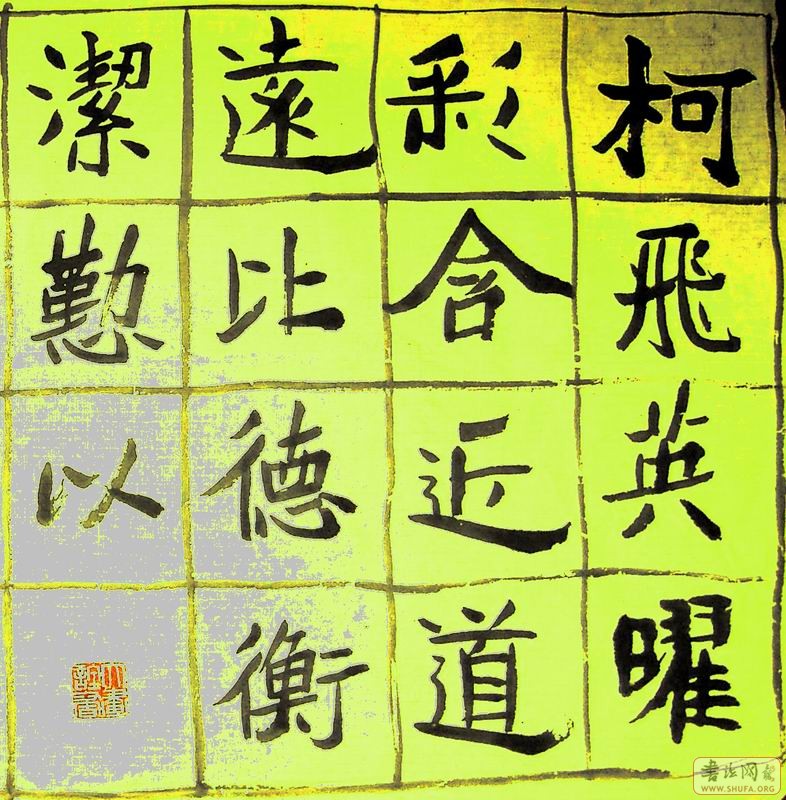 柯飛英曜
彩含近道
遠比德衡
潔懃以
書法网
WWW.SHUFA.ORG